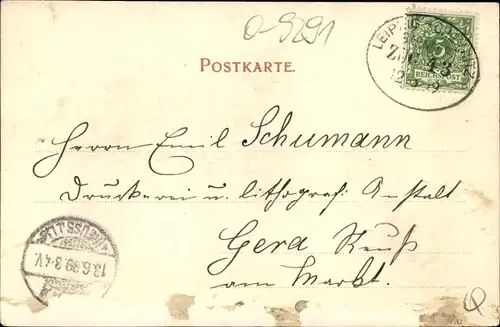 O-9291
POSTKARTE.
5
REICHSPOST
ZUG 13
Herrn Emil Schumann
Druckerei u. lithograf. Anstalt
Gera Reuß
am Markt.
13.6.99.3-4.V.